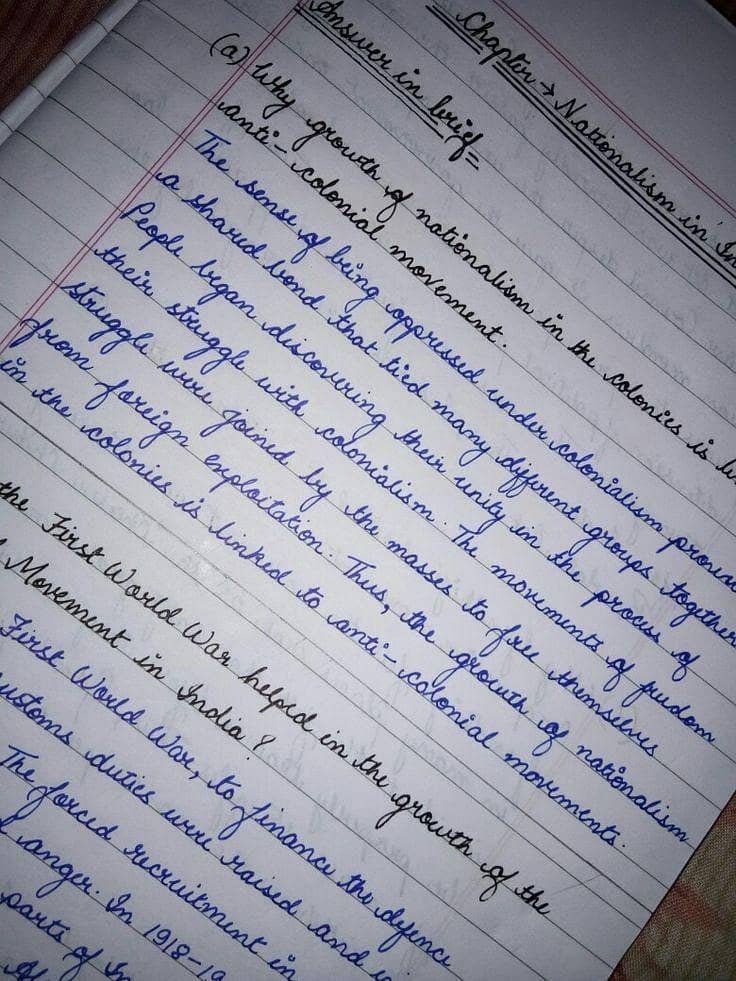 Chapter → Nationalism in
Answer in brief =
(a) Why growth of nationalism in the colonies is
anti-colonial movement.
The sense of being oppressed under colonialism
a shared bond that tied many different groups together
People began discovering their unity in the process of
their struggle with colonialism. The movements of
struggle were joined by the masses to free themselves
from foreign exploitation. Thus, the growth of nationalism
in the colonies is linked to anti-colonial movements.
the First World War helped in the growth of the
Movement in India?
First World War, to finance the defence
customs duties were raised and
The forced recruitment in
anger. In 1918-19
parts of